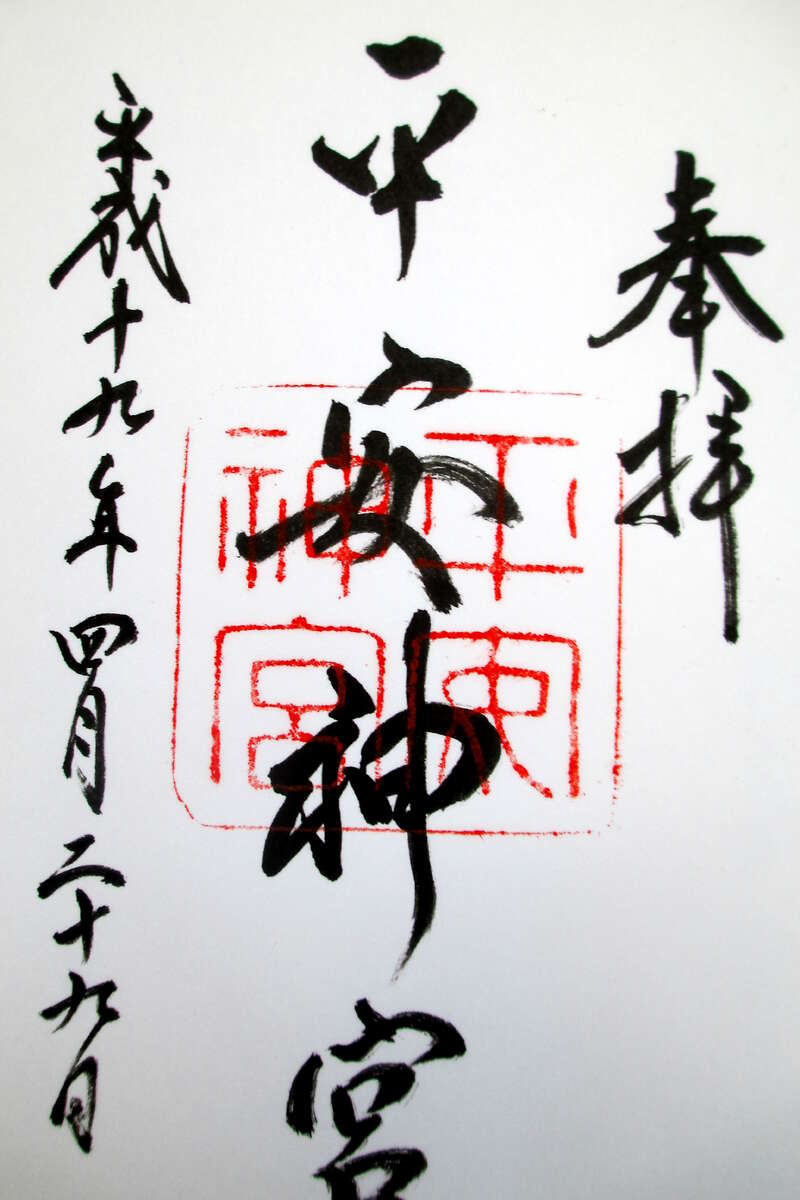 奉拝
平安神宮
平安神宮
平成十九年四月二十九日